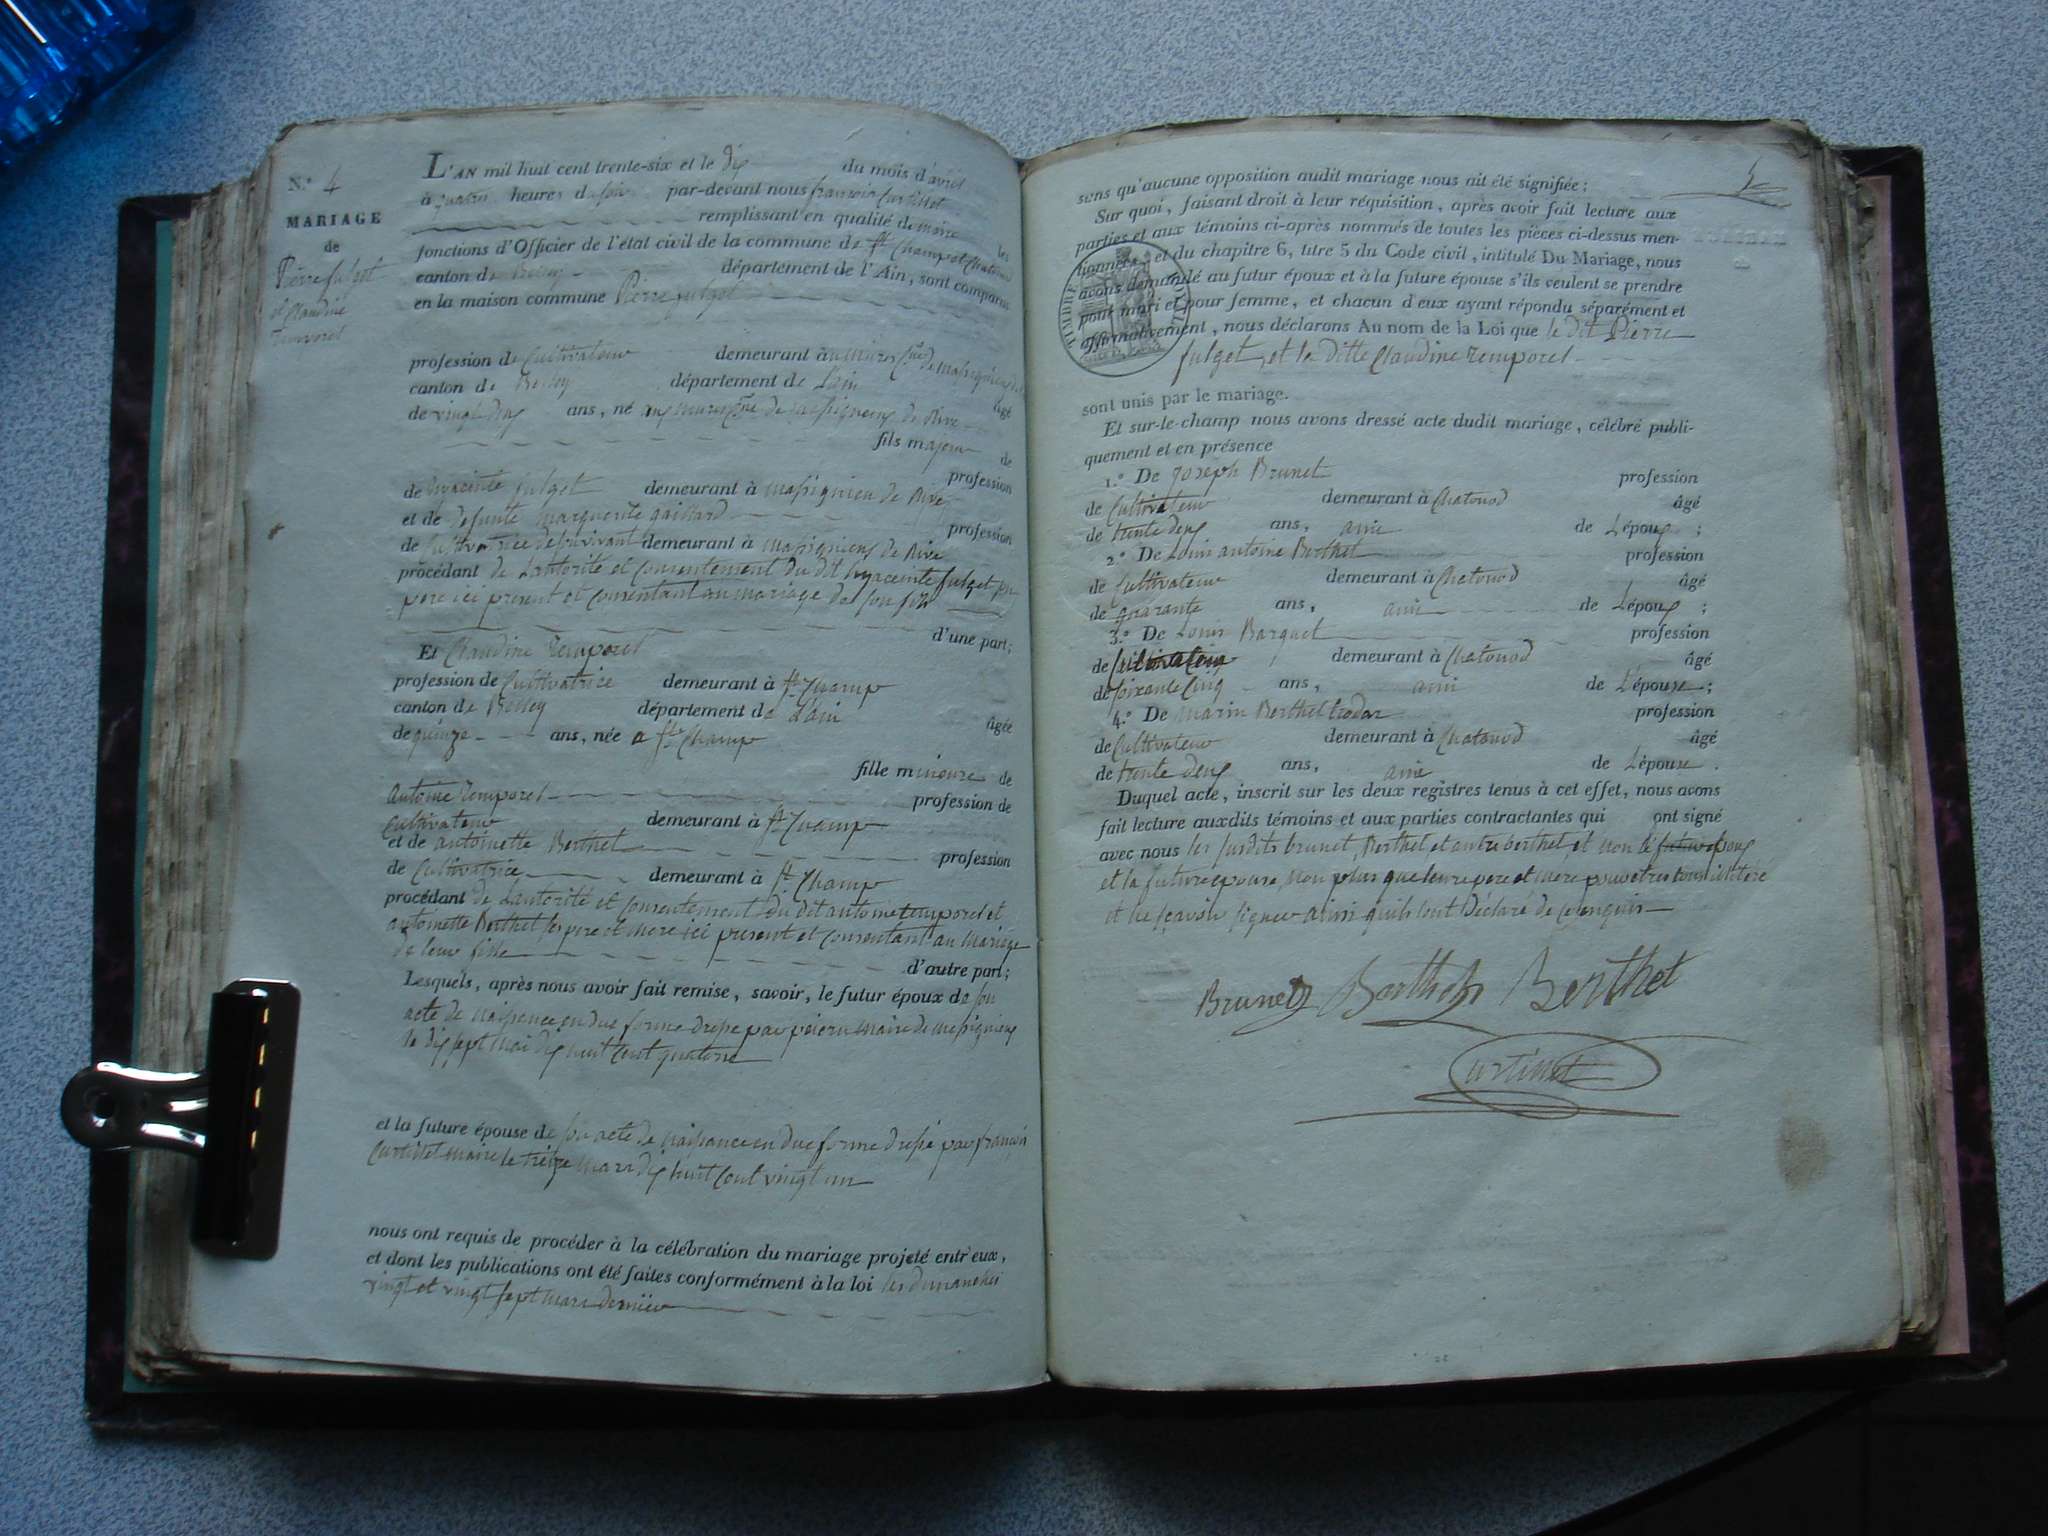 N.° 4
MARIAGE
de
Pierre fulget
et Claudine
Temporel
L'AN mil huit cent trente-six et le dix du mois d'avril
à quatre heures du soir par-devant nous françois Curtillet
remplissant en qualité de maire les
fonctions d'Officier de l'état civil de la commune de Ste Champ et Chatonod
canton de Belley département de l'Ain, sont comparus
en la maison commune Pierre fulget
profession de Cultivateur demeurant à Cne de Massignieu
canton de Belley département de L'ain
de vingt deux ans, né Cne de massignieux de Rive âgé
fils majeur de
de hyacinte fulget demeurant à massignieu de Rive profession
et de defunte marguerite gaillard
de Cultivatrice de son vivant demeurant à massignieux de Rive profession
procédant de Lautorité et Consentement du dit hyacinte fulget son
pere ici present et Consentant au mariage de son fils
d'une part;
Et Claudine Temporel
profession de Cultivatrice demeurant à Ste Champ
canton de Belley département de d'ain
de quinze ans, née a Ste Champ âgée
fille mineure de
antoine Temporel profession de
Cultivateur demeurant à Ste Champ
et de antoinette Berthet profession
de Cultivatrice demeurant à Ste Champ
procédant de Lautorité et Consentement du dit antoine temporel et
antoinette Berthet ses pere et mere ici present et Consentant au mariage
de leur fille
d'autre part;
Lesquels, après nous avoir fait remise, savoir, le futur époux de son
acte de naissance en due forme dressé par maire de massignieux
le dix sept mai dix huit Cent quatorze
et la future épouse de son acte de naissance en due forme dressé par françois
Curtillet maire le treize mars dix huit Cent vingt un
nous ont requis de procéder à la célébration du mariage projeté entr'eux,
et dont les publications ont été faites conformément à la loi les dimanches
vingt et vingt sept mars dernier
5
sans qu'aucune opposition audit mariage nous ait été signifiée;
Sur quoi, faisant droit à leur réquisition, après avoir fait lecture aux
parties et aux témoins ci-après nommés de toutes les pièces ci-dessus men-
tionnées, et du chapitre 6, titre 5 du Code civil, intitulé Du Mariage, nous
avons demandé au futur époux et à la future épouse s'ils veulent se prendre
pour mari et pour femme, et chacun d'eux ayant répondu séparément et
affirmativement, nous déclarons Au nom de la Loi que le dit Pierre
fulget et la ditte Claudine temporel
TIMBRE
sont unis par le mariage.
Et sur-le-champ nous avons dressé acte dudit mariage, célébré publi-
quement et en présence
1.° De Joseph Brunet profession
de Cultivateur demeurant à Chatonod âgé
de trente deux ans, ami de L'époux ;
2.° De Louis antoine Berthet profession
de Cultivateur demeurant à Chatonod âgé
de quarante ans, ami de L'époux ;
3.° De Louis Barquet profession
de Cultivateur demeurant à Chatonod âgé
de soixante Cinq ans, ami de L'épouse ;
4.° De marin Berthet profession
de Cultivateur demeurant à Chatonod âgé
de trente deux ans, ami de L'épouse .
Duquel acte, inscrit sur les deux registres tenus à cet effet, nous avons
fait lecture auxdits témoins et aux parties contractantes qui ont signé
avec nous les susdits brunet, Berthet, et autre berthet, et non le futur époux
et la future epouse, non plus que leurs pere et mere pour etres tous illitéré
et ne scavoir signer ainsi quils lont Déclaré de ce enquis
Brunet Berthet Berthet
Curtillet